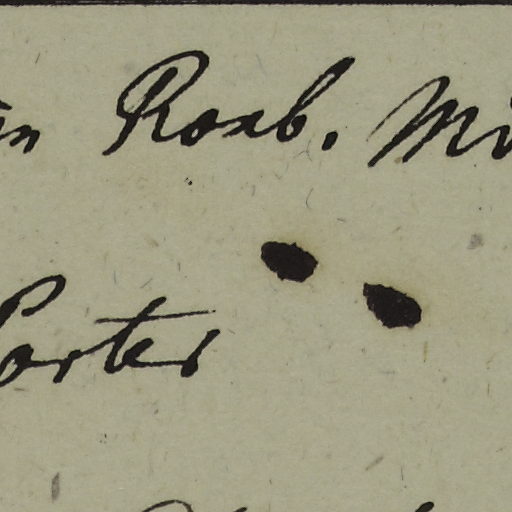 Roxb. Mi
Porter